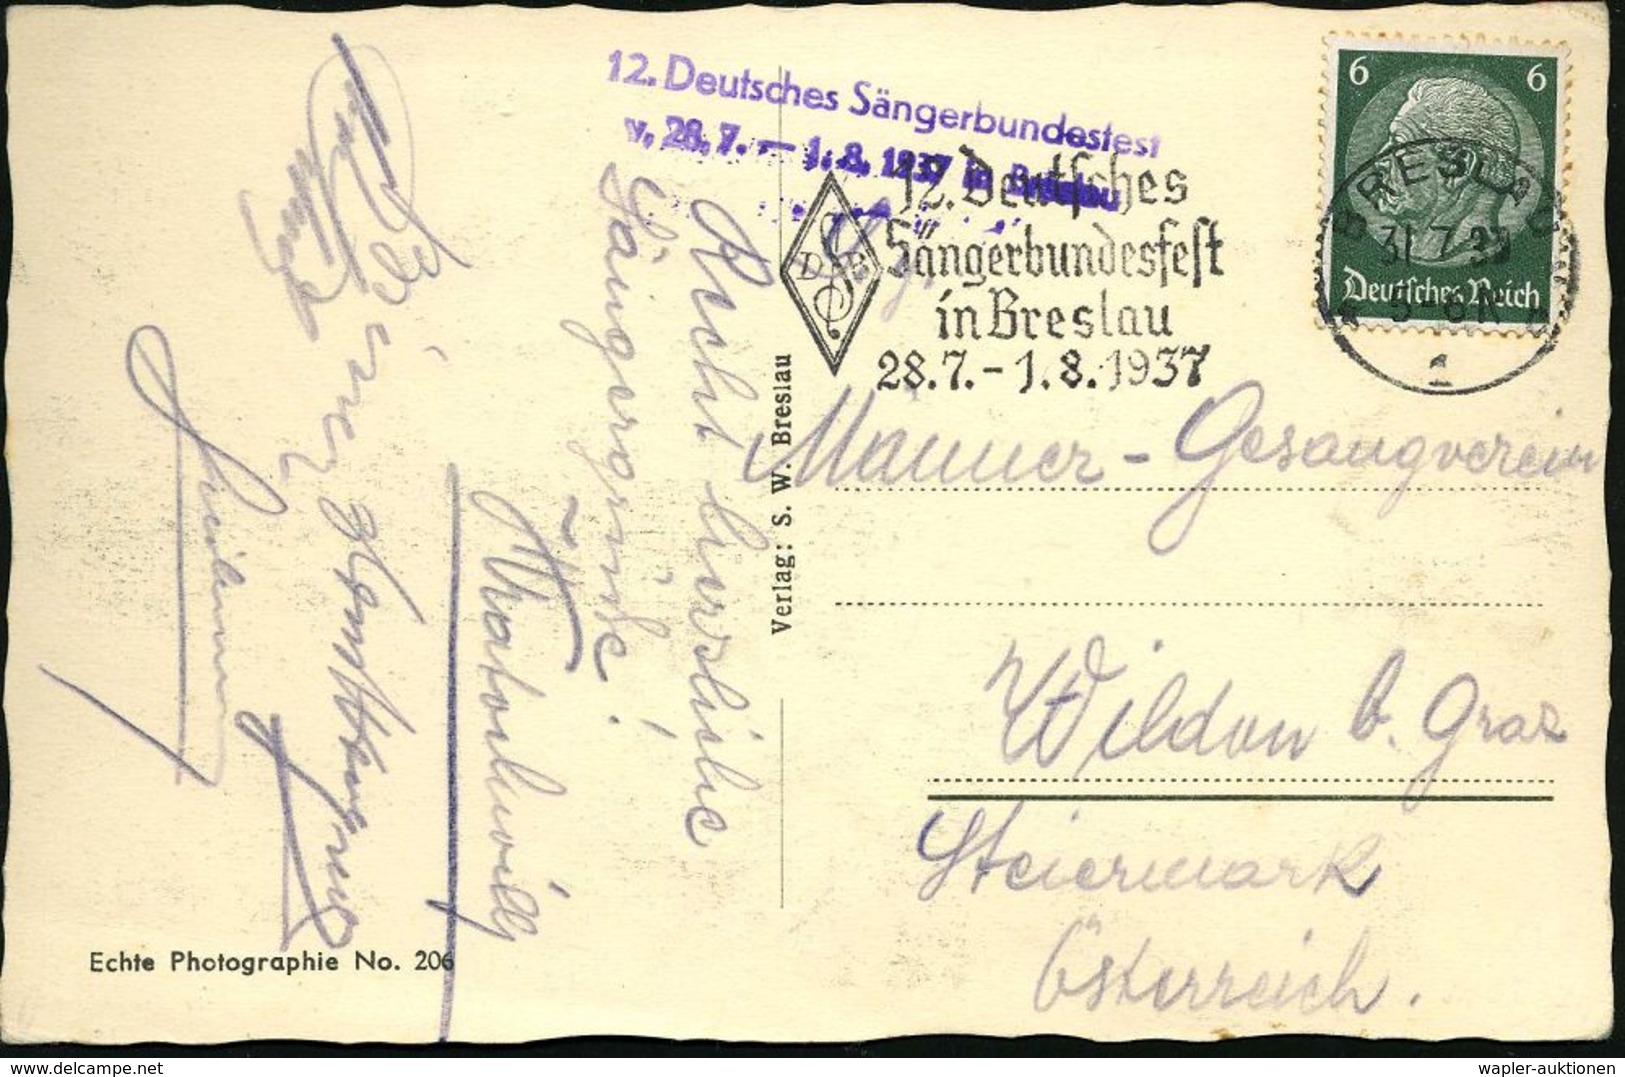 12. Deutsches Sängerbundesfest
v. 28. 7. – 1. 8. 1937 in Breslau
12. Deutsches
Sängerbundesfest
in Breslau
28.7.-1.8.1937
D S B
6 6
Deutsches Reich
BRESLAU
31.7.37
1
Männer-Gesangverein
Wildon b. Graz
Steiermark
Österreich.
Recht herzliche
Sängergrüße!
Verlag: S. W. Breslau
Echte Photographie No. 206
wapler-auktionen
www.delcampe.net